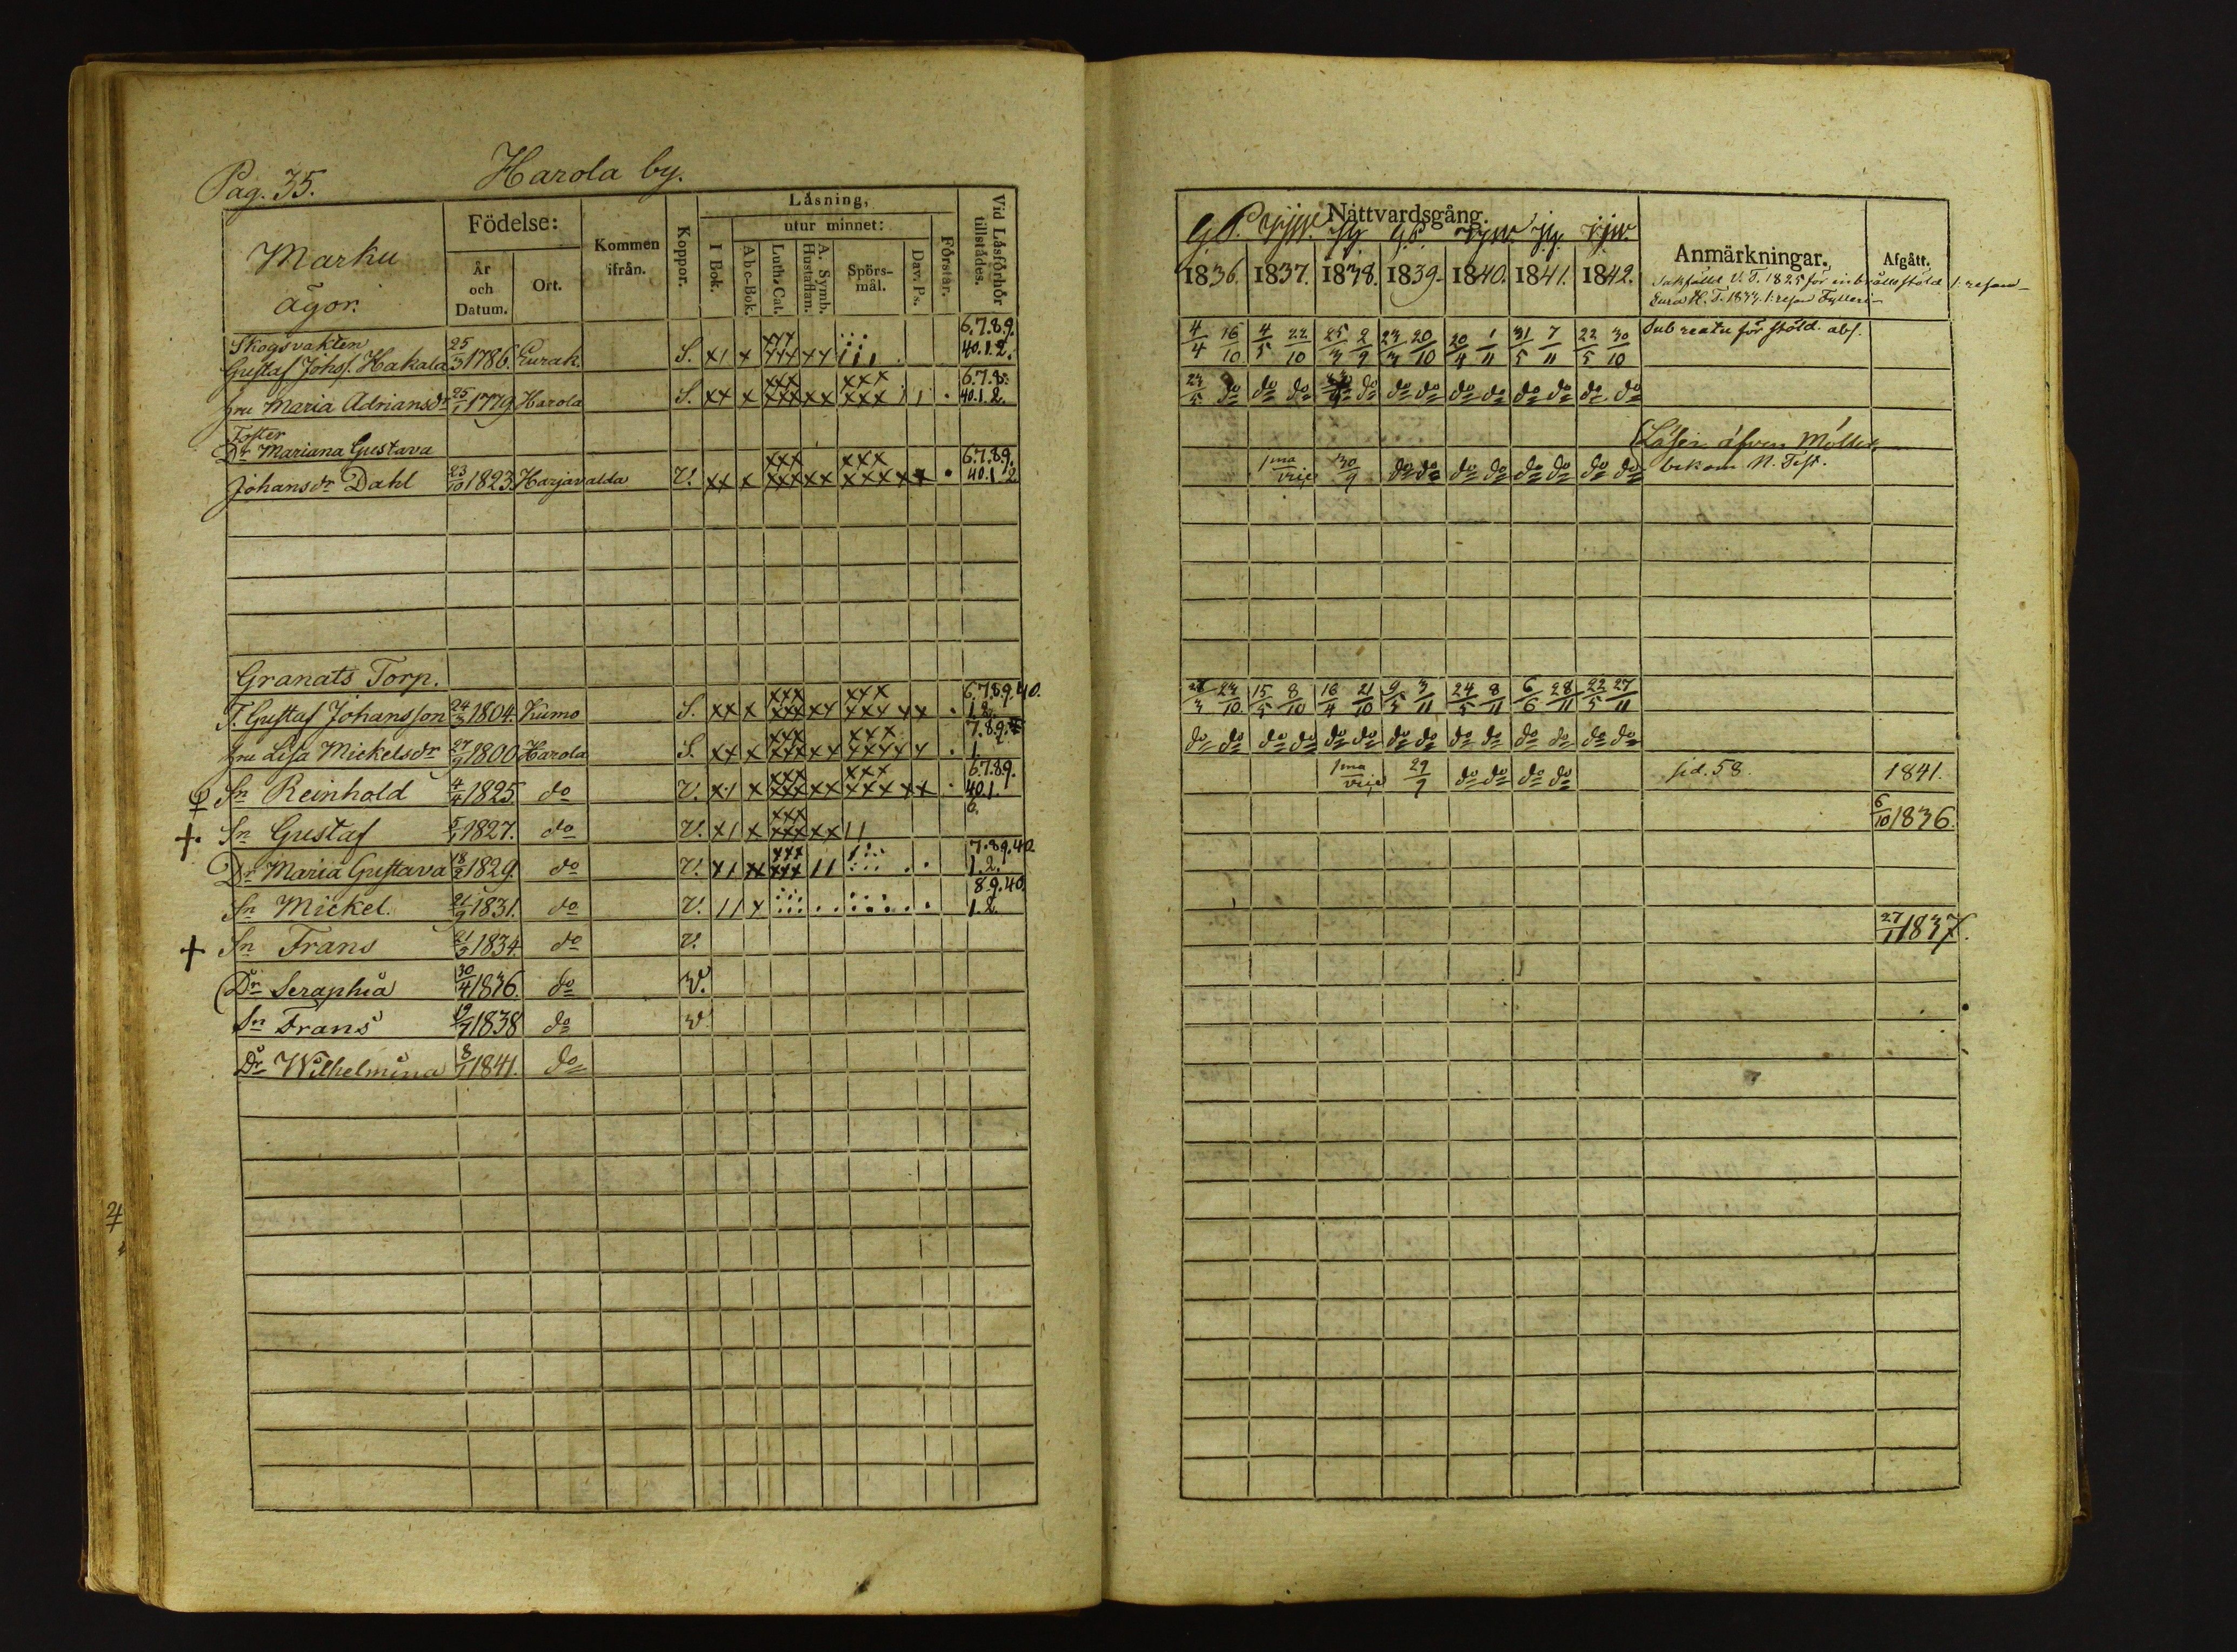 Pag. 35.
Harola by.
Marku
ägor.
Födelse:
År
och
Datum.
Ort.
Kommen
ifrån.
Koppor.
Läsning,
I Bok.
utur minnet:
Abc-Bok.
Luth. Cat.
A. Symb.
Hustaflan.
Spörs-
mål.
Dav. Ps.
Förstår.
Vid Läsförhör
tillstädes.
Skogsvakten 25 6.7.8.9.
Gustaf Johss. Hakala 3 1786. Eurak. S. x1 x xxx xx 40.1.2.
hru Maria Adriansdr 25/1 1779 Harola S. xx x xxx xx xxx 6.7.8. 40.1.2.
Foster
Dr Mariana Gustava 6.7.8.9.
Johansdr Dahl 23/10 1823. Harjavalda V. xx x xxx xx xxx xx 40.1.2
Granats Torp.
T. Gustaf Johansson 24/3 1804. Kumo S. xx x xxx xx xxx xx 6.7.8.9.40. 1.2.
hru Lisa Mickelsdr 27/9 1800 Harola S. xx x xxx xx xxx xx 7.8.9. 1.
Sn Reinhold 4/4 1825. do V. x1 x xxx xx xxx xx 6.7.8.9. 40.1.
+ Sn Gustaf 5/1 1827. do V. x1 x xxx xx 11 6.
Dr Maria Gustava 18/2 1829. do V. x1 xx xxx 11 7.8.9.40. 1.2.
Sn Mickel. 21/9 1831. do V. 11 x 8.9.40. 1.2.
+ Sn Frans 21/2 1834. do V.
Dr Seraphia 30/4 1836. do V.
Sn Frans 19/7 1838 do V.
Dr Wilhelmina 8/1 1841. do
Nattvardsgång.
1836. 1837. 1838. 1839. 1840. 1841. 1842.
Anmärkningar.
Afgått.
Sakfälld V. T. 1825 för inbrottsstöld 1: resan
Eura H. T. 1837. 1: resan Fylleri
4/4 16/10 4/5 22/10 25/3 2/9 23/3 20/10 20/4 1/11 31/5 7/11 22/5 30/10 Sub reatu för stöld. abs.
24/5 do do do do do do do do do do do do
Läser äfven Möller,
1ma 30/9 do do do do do do do do bekom N. Test.
28/3 23/10 15/5 8/10 16/4 21/10 9/5 3/11 24/5 8/11 6/6 28/11 22/5 27/11
do do do do do do do do do do do do do do
1ma 29/9 do do do do sid. 58. 1841.
6/10 1836.
27/11 1837.